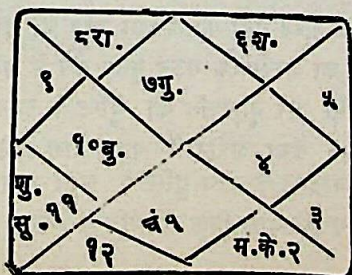 ८रा.
६श.
९
७गु.
५
१०बु.
४
शु.
सू.११
चं१
३
१२
मं.के.२